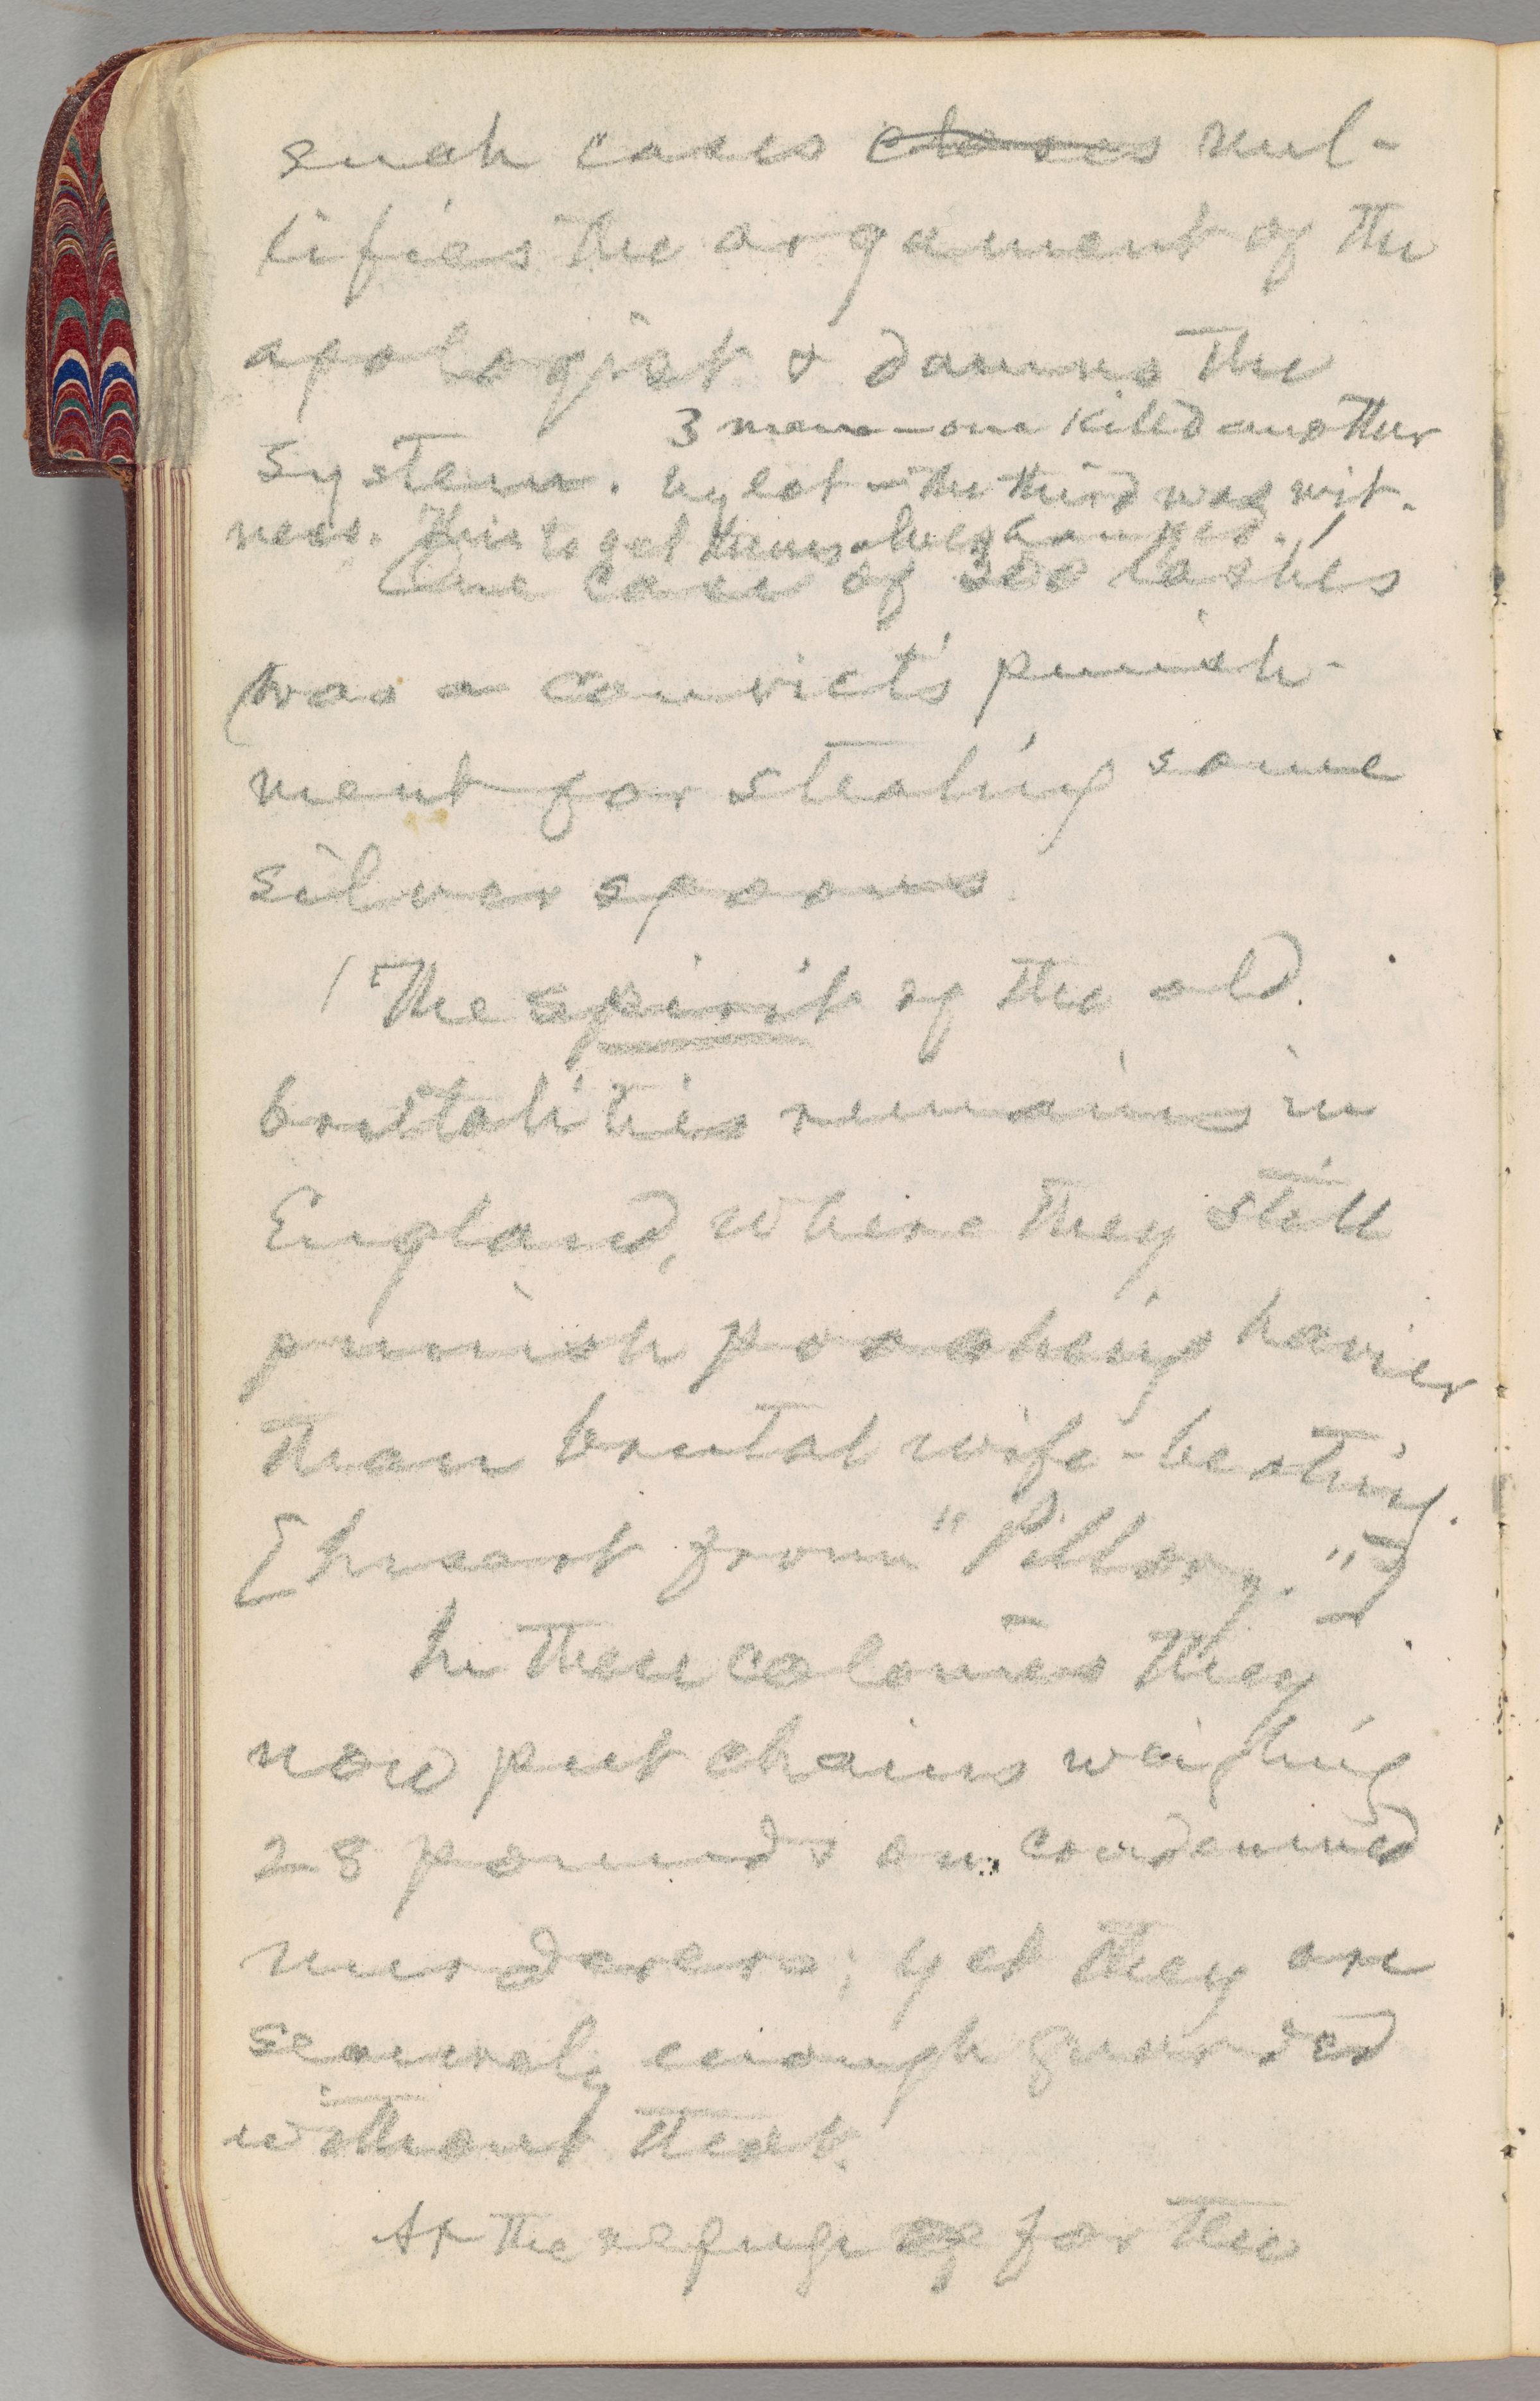 such cases closes nul-
lifies the argument of the
apologist & damns the
system. 3 men—one killed another
by lot—the third was wit-
ness. This to get themselves hanged.
One case of 300 lashes
was a convict's punish-
ment for stealing some
silver spoons.
The spirit of the old
brutalities remains in
England, where they still
punish poaching havier
than brutal wife-beating.
[Insert from "Pillory."]
In their colonies they
now put chains weighing
28 pounds on condemned
murderers; yet they are
securely enough guarded
without that.
At the refuge for the